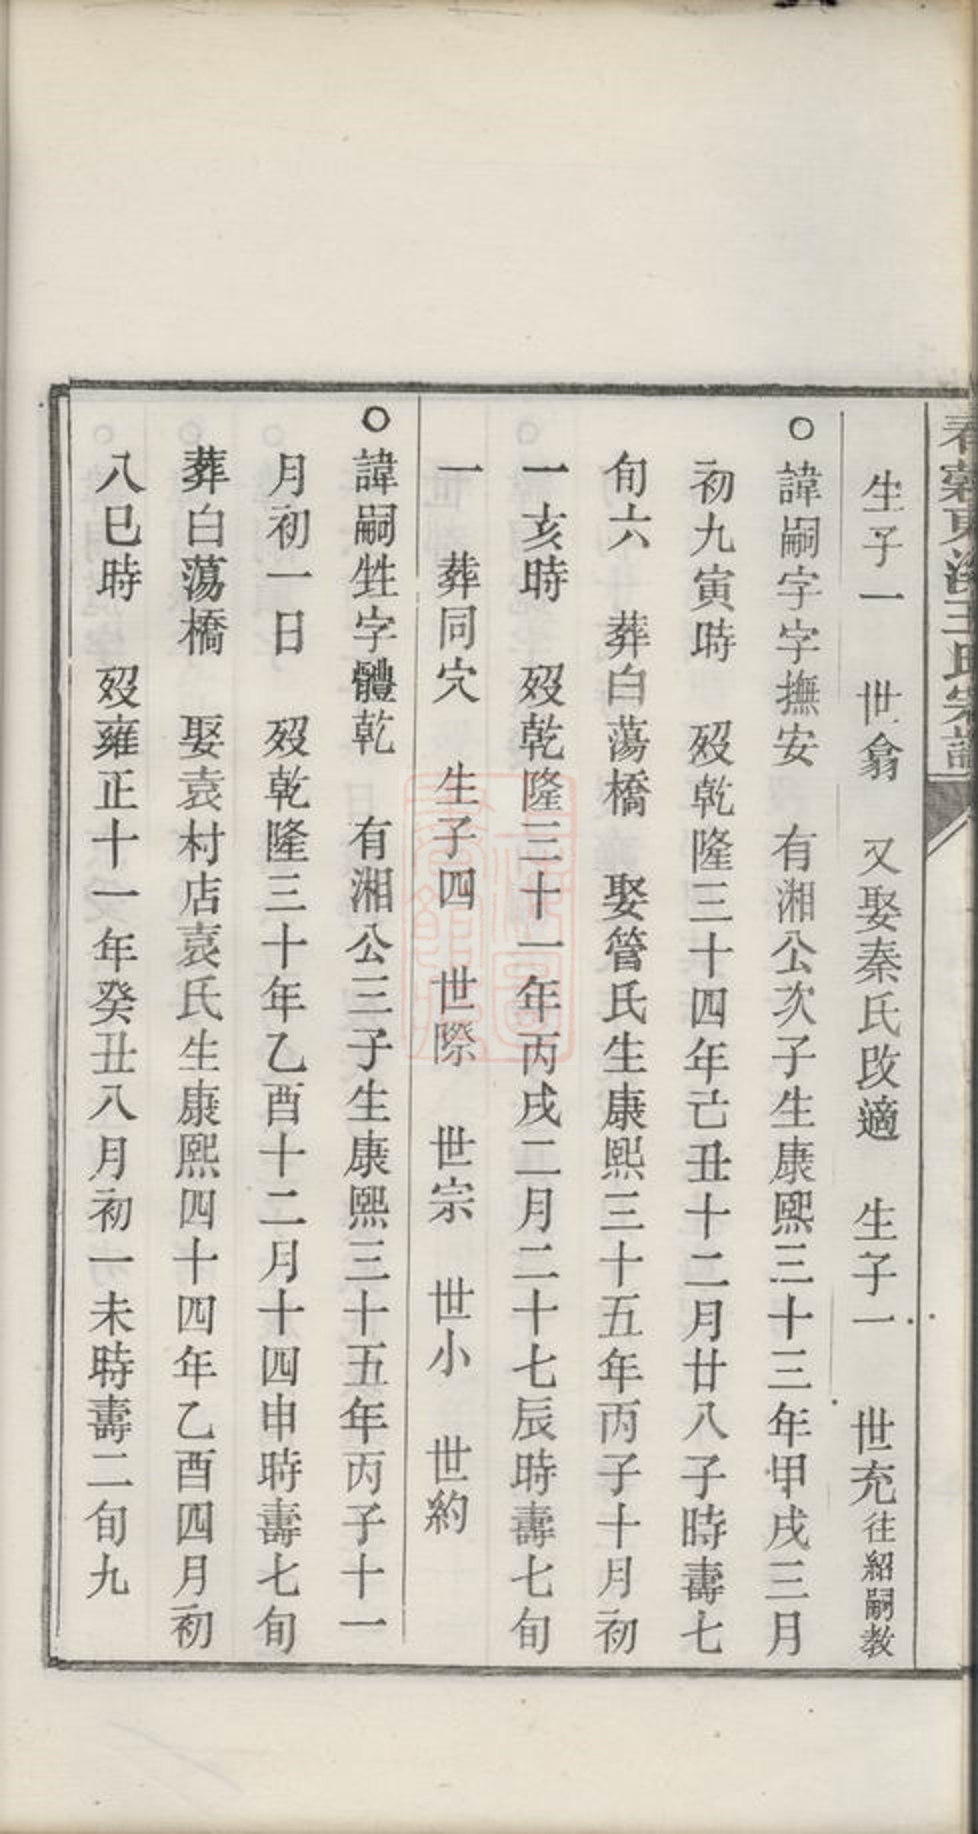 春穀東溪王氏宗譜
生子一　世翕　又娶秦氏改適　生子一　世充往紹嗣教
○諱嗣字字撫安　有湘公次子生康熙三十三年甲戌三月
初九寅時　歿乾隆三十四年己丑十二月廿八子時壽七
旬六　葬白蕩橋　娶管氏生康熙三十五年丙子十月初
一亥時　歿乾隆三十一年丙戌二月二十七辰時壽七旬
一　葬同穴　生子四　世際　世宗　世小　世約
○諱嗣甡字體乾　有湘公三子生康熙三十五年丙子十一
月初一日　歿乾隆三十年乙酉十二月十四申時壽七旬
葬白蕩橋　娶袁村店袁氏生康熙四十四年乙酉四月初
八巳時　歿雍正十一年癸丑八月初一未時壽二旬九